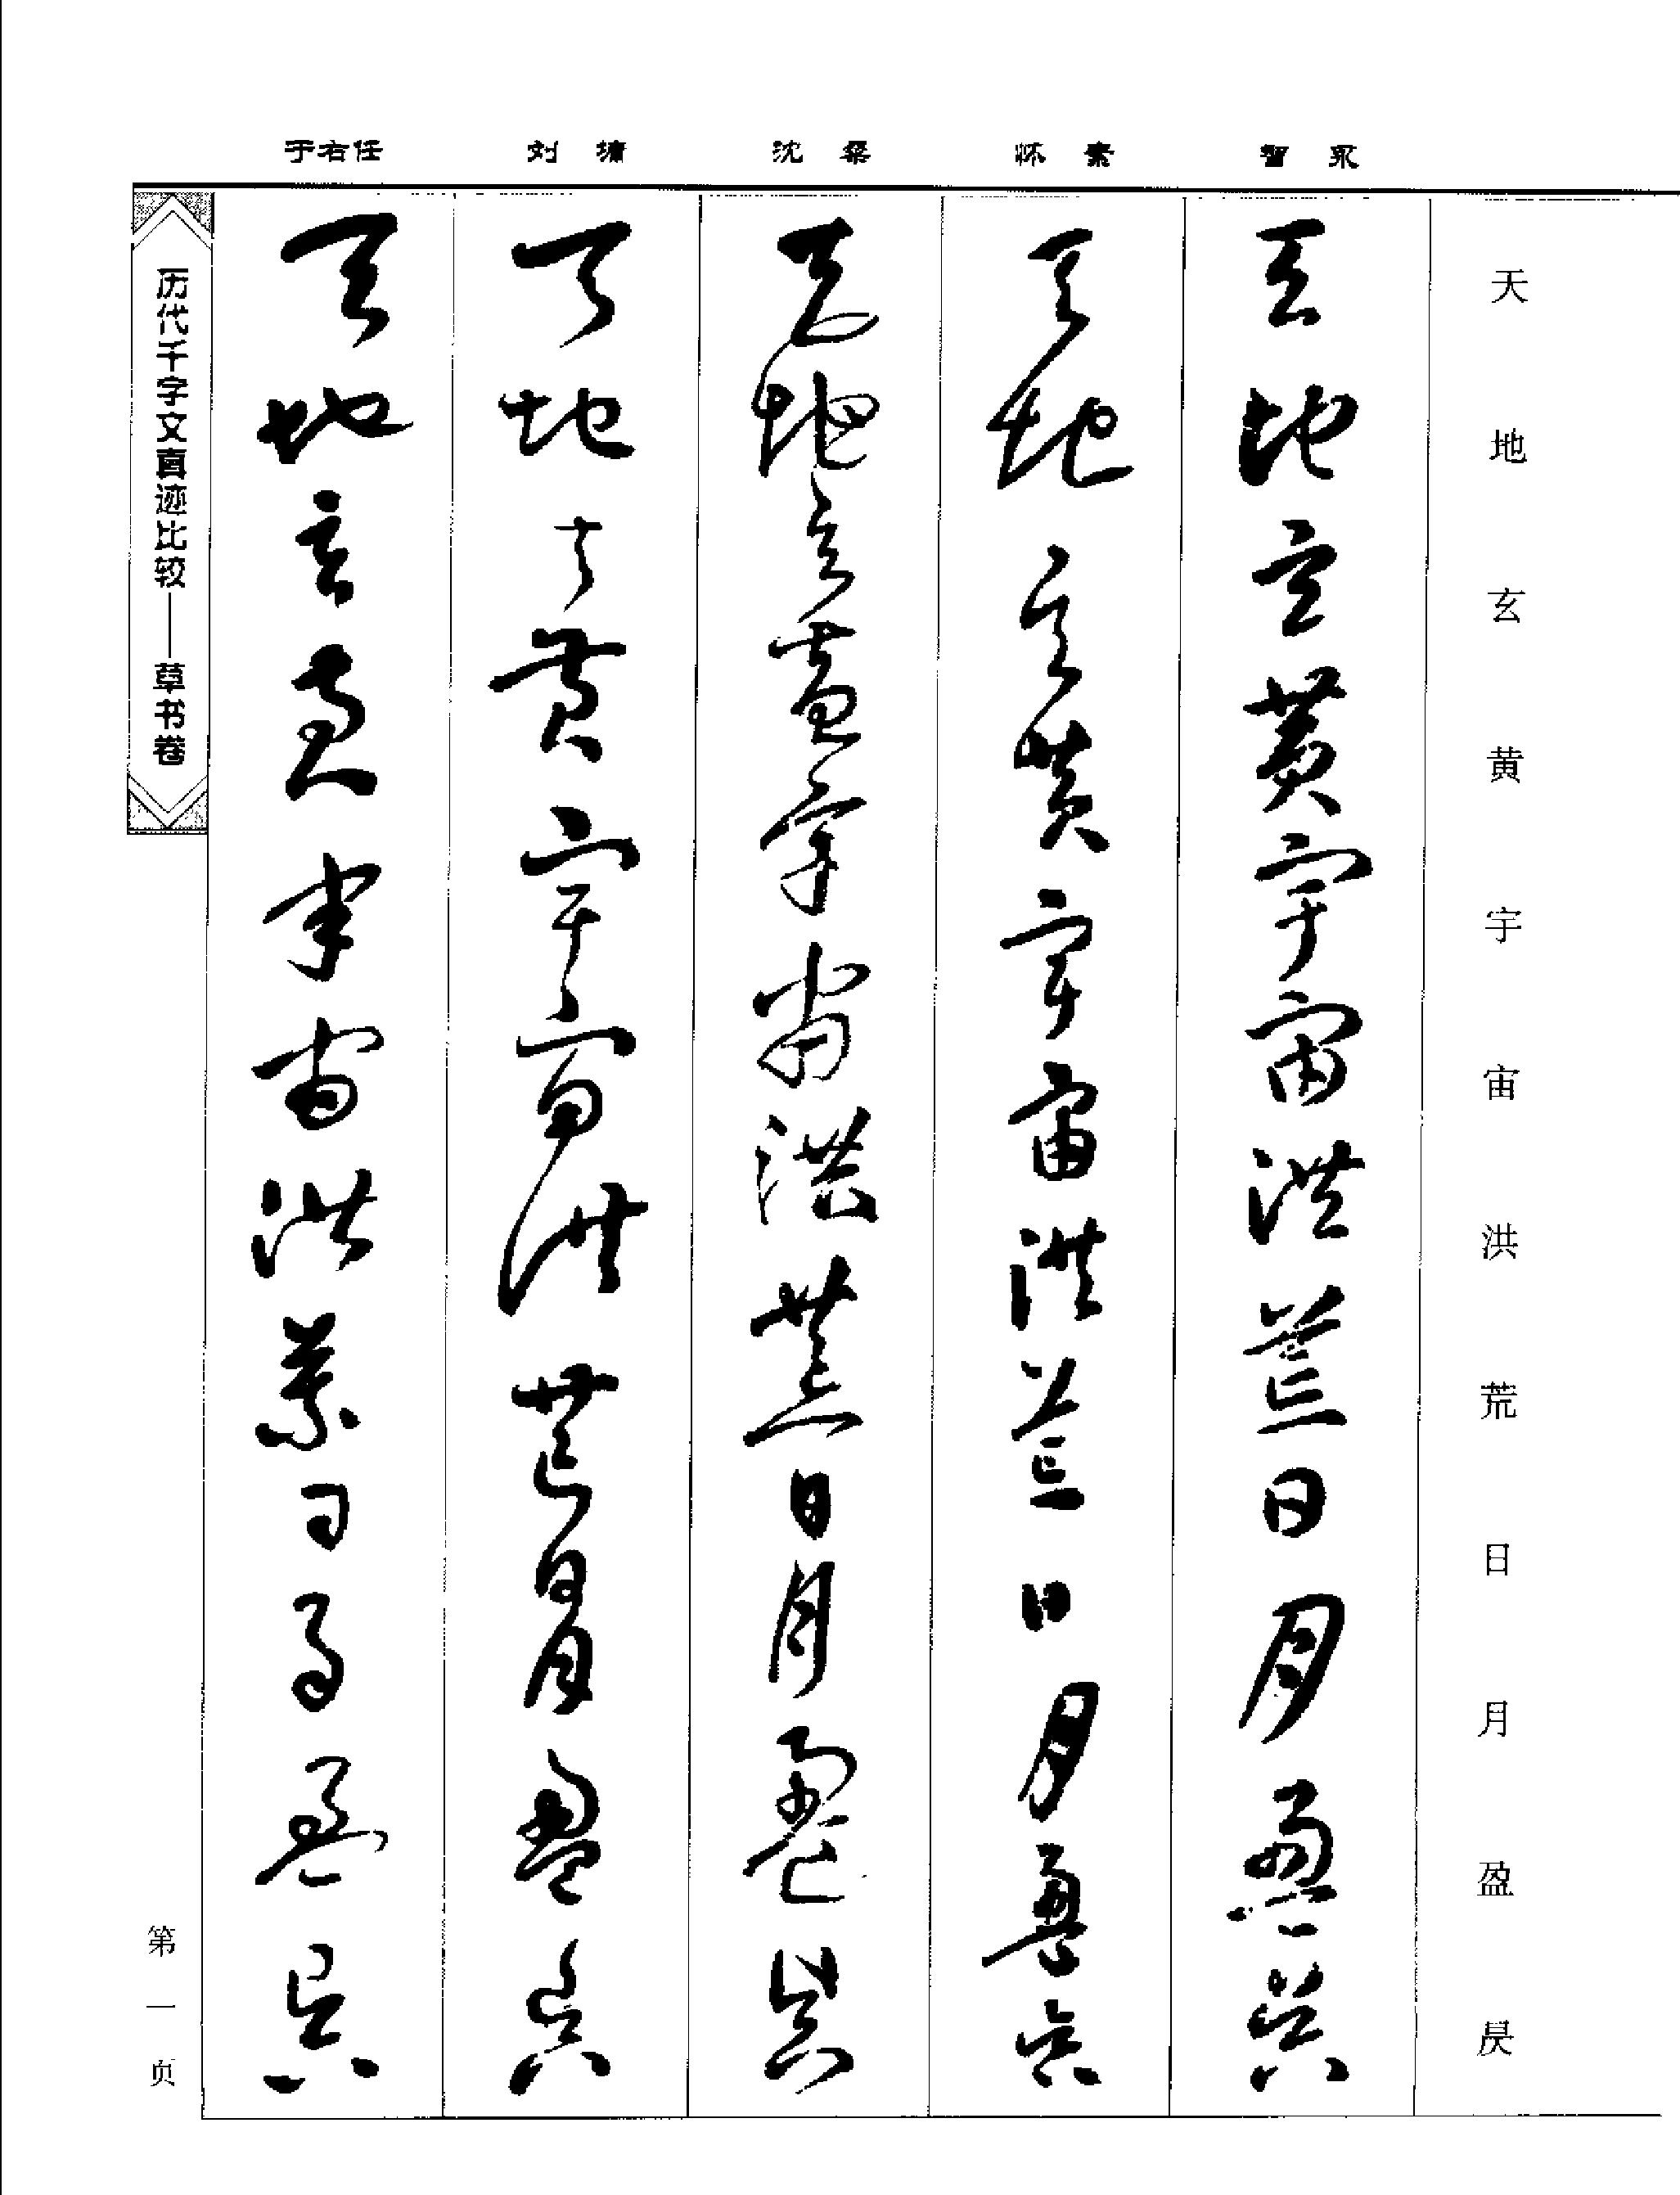 智永
怀素
沈粲
刘墉
于右任
天地玄黄宇宙洪荒日月盈昃
天地玄黄宇宙洪荒日月盈昃
天地玄黄宇宙洪荒日月盈昃
天地玄黄宇宙洪荒日月盈昃
天地玄黄宇宙洪荒日月盈昃
天地玄黄宇宙洪荒日月盈昃
历代千字文真迹比较——草书卷
第一页